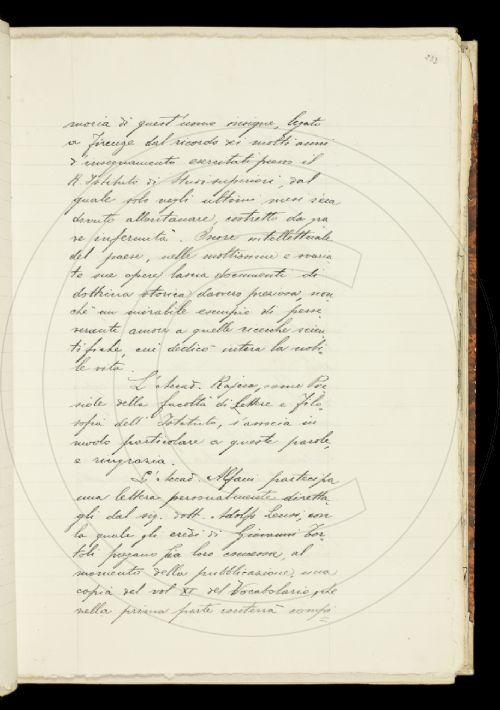 moria di quest'uomo insigne, legato
a Firenze dal ricordo di molti anni
d'insegnamento esercitati presso il
R. Istituto di Studi superiori, dal
quale solo negli ultimi mesi s'era
dovuto allontanare, costretto da gra
ve infermità. Onore intellettuale
del paese, nelle moltissime e svaria
te sue opere lascia documenti di
dottrina storica davvero preziosa, non
chè un mirabile esempio di perse
verante amore a quelle ricerche scien
tifiche, cui dedicò intera la nobi-
le vita.
L'Accad. Rajna, come Pre
side della facoltà di Lettere e Filo
sofia dell'Istituto, s'associa in
modo particolare a queste parole,
e ringrazia.
L'Accad. Alfani partecipa
una lettera personalmente diretta
gli dal sig. dott. Adolfo con
la quale gli eredi di Giovanni Tor
toli pregano sia loro concessa, al
momento della pubblicazione, una
copia del vol. XI del Vocabolario, che
nella prima parte conterrà compi